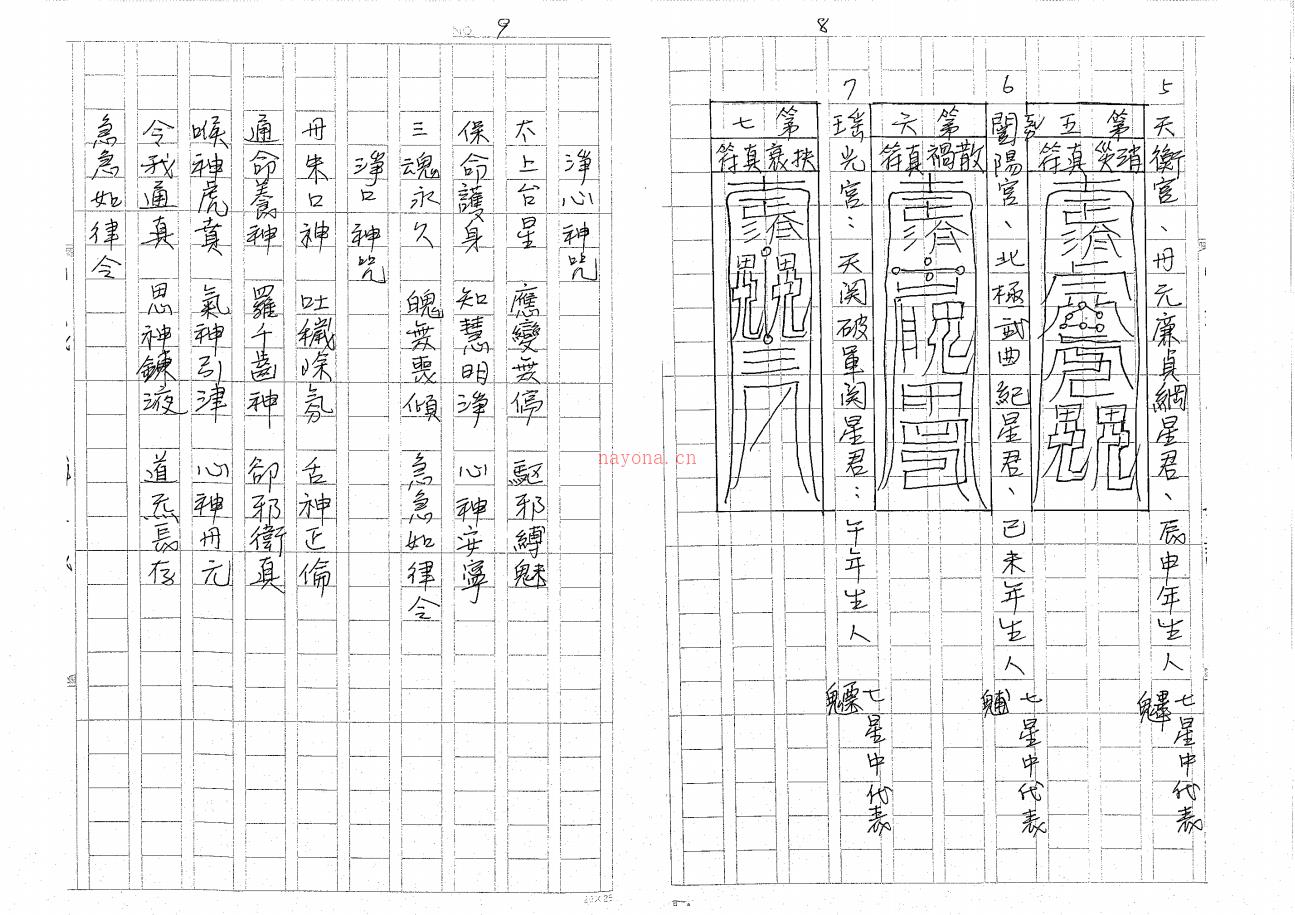 8
5 天衡宮、丹元廉貞綱星君、辰申年生人 七星中代表
第五
消災真符
6 闓陽宮、北極武曲紀星君、巳未年生人 七星中代表
第六
散禍真符
7 瑤光宮：天関破軍関星君：午年生人 七星中代表魒
第七
扶衰真符
NO. 9
淨心神咒
太上台星 應變無停 驅邪縛魅
保命護身 知慧明淨 心神安寧
三魂永久 魄無喪傾 急急如律令
淨口神咒
丹朱口神 吐穢除氛 舌神正倫
通命養神 羅千齒神 卻邪衛真
喉神虎賁 氣神引津 心神丹元
令我通真 思神鍊液 道炁長存
急急如律令
nayona.cn